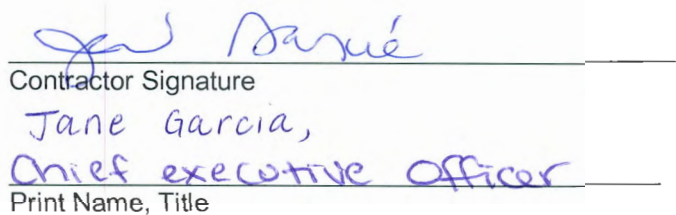 Contractor Signature
Jane Garcia,
Chief executive Officer
Print Name, Title